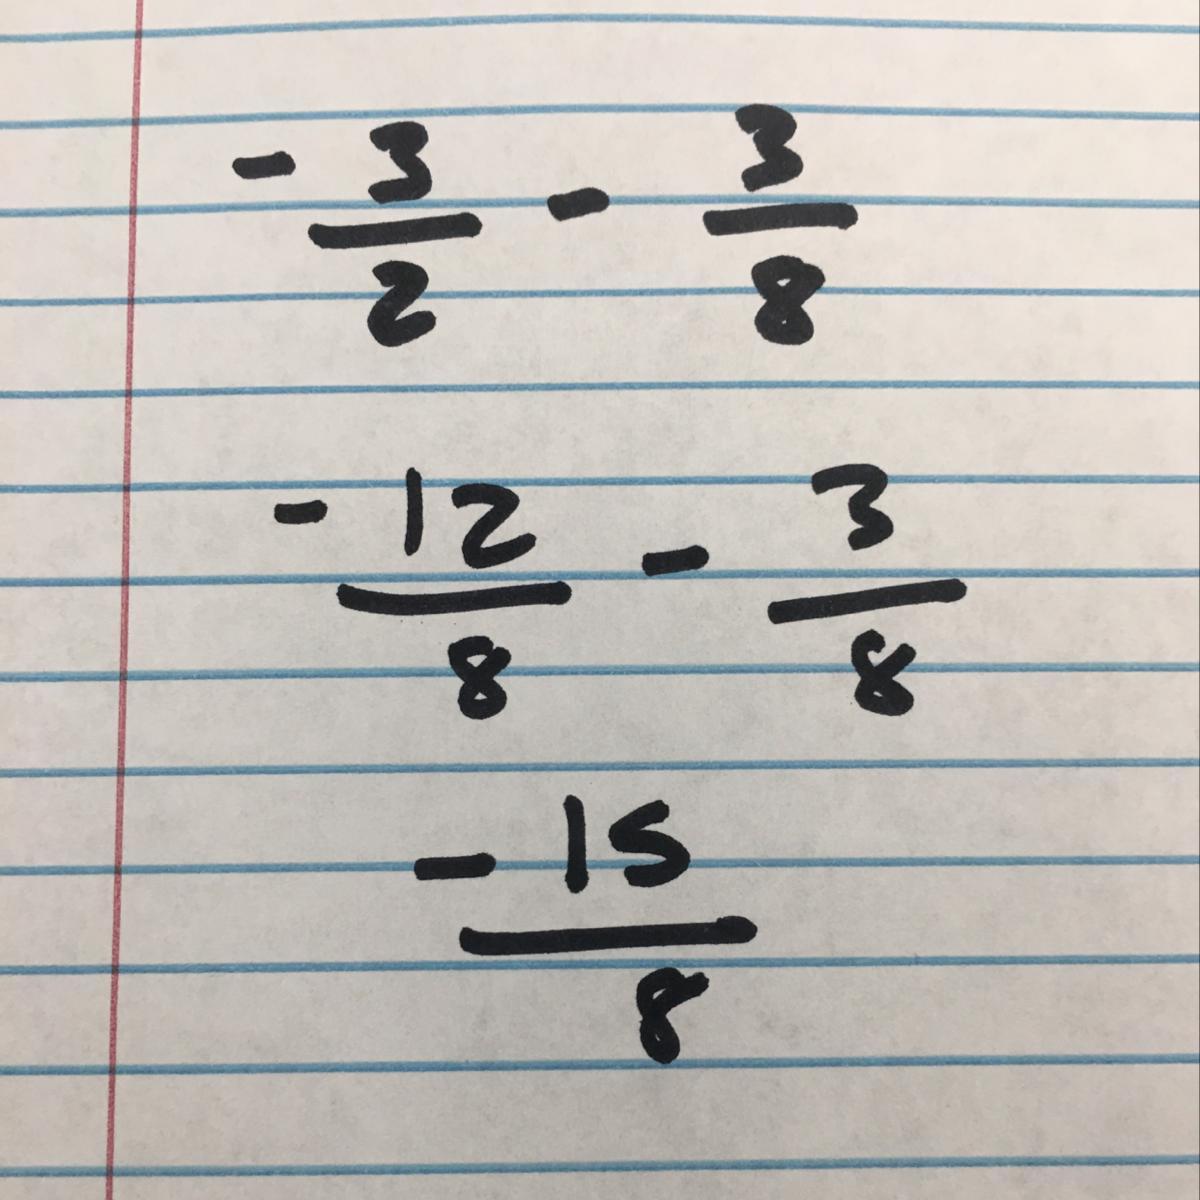 - 3/2 - 3/8
- 12/8 - 3/8
- 15/8